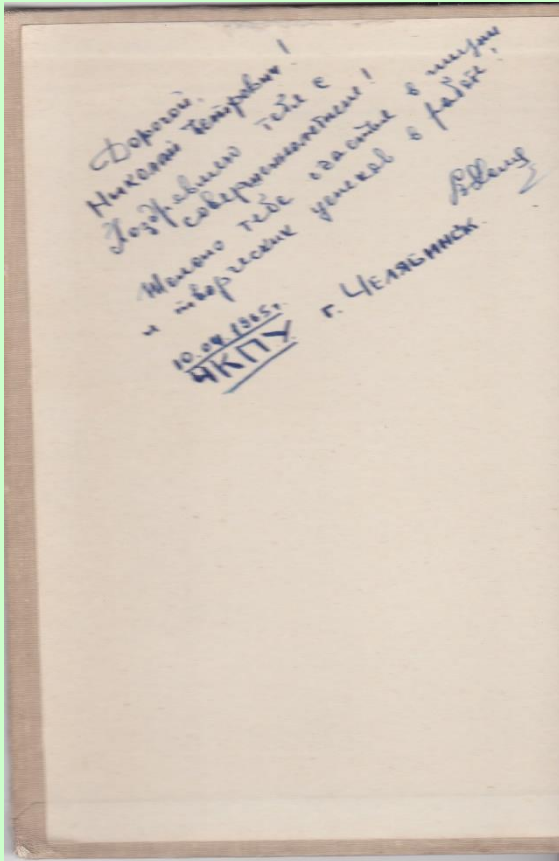 Дорогой,
Николай Петрович!
Поздравляю тебя с
совершеннолетием!
Желаю тебе счастья в жизни
и творческих успехов в работе!
10.04.1965г.
ЧКПУ г. Челябинск